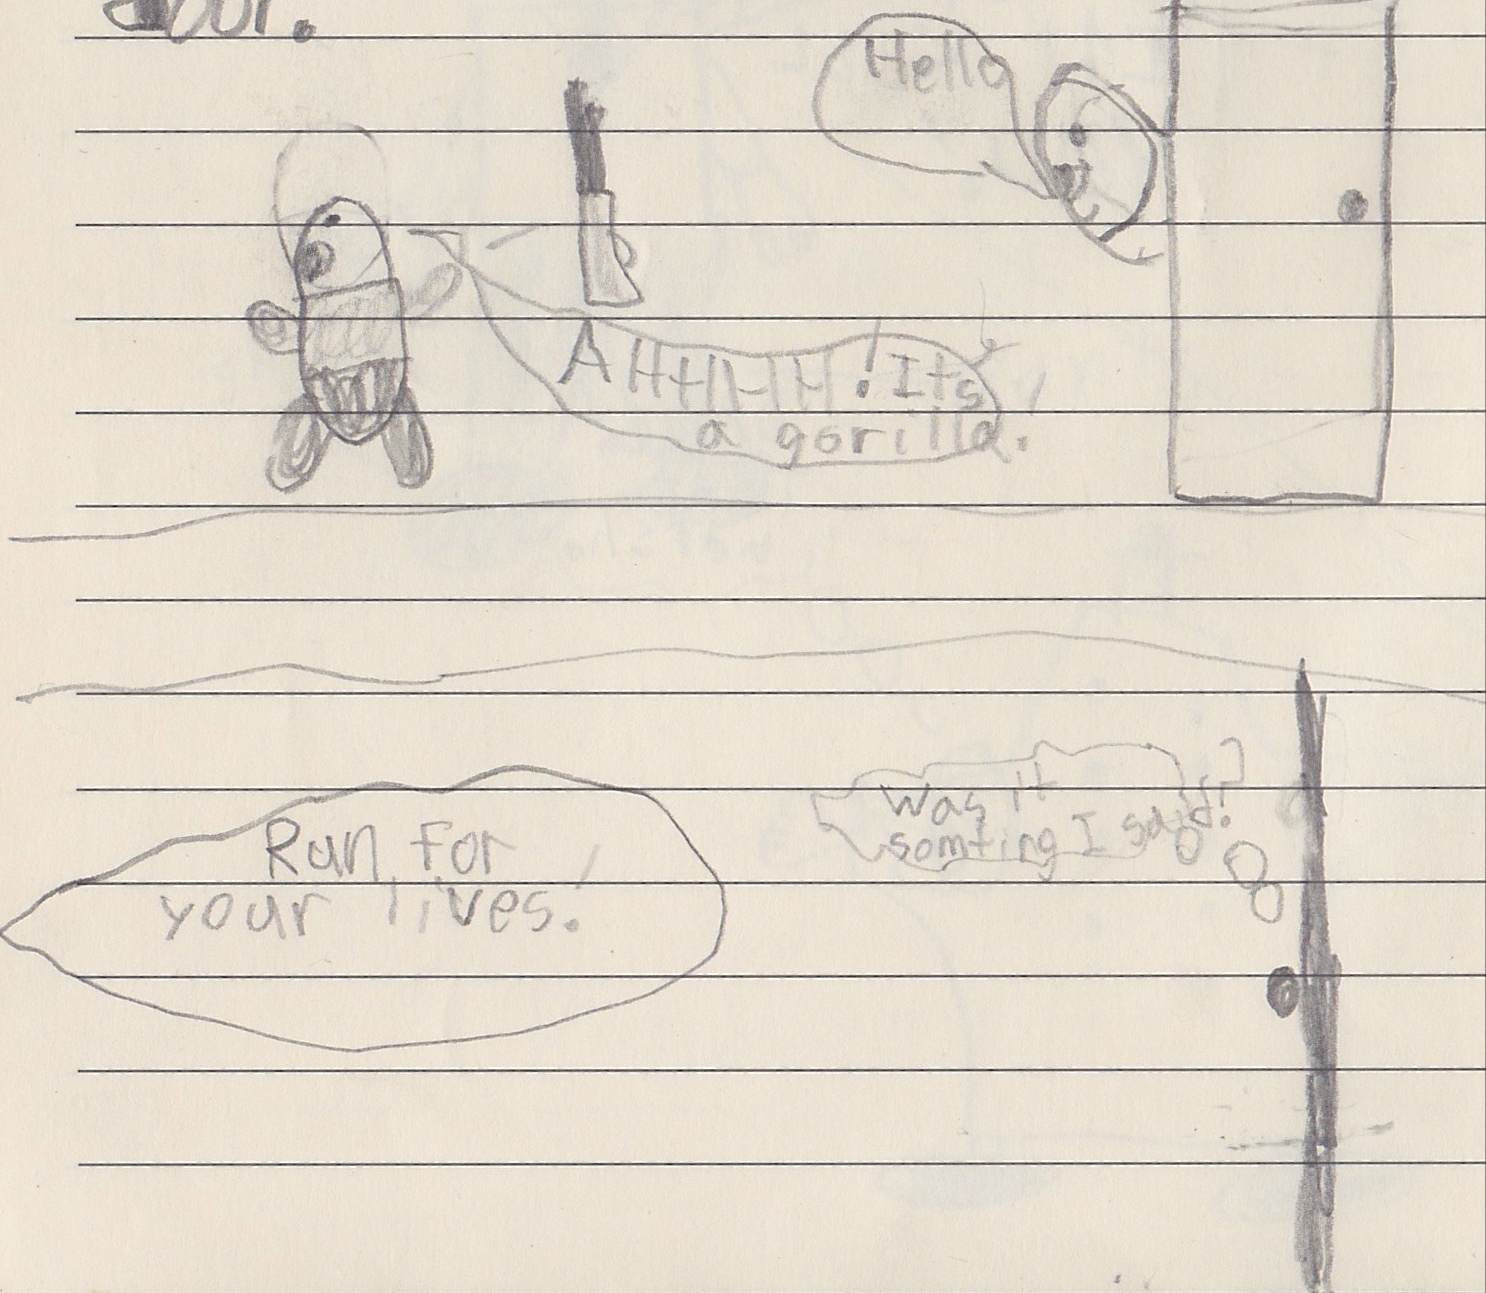 Hello
AHHHHH! Its
a gorilla!
Run for
your lives!
Was it
somting I said?